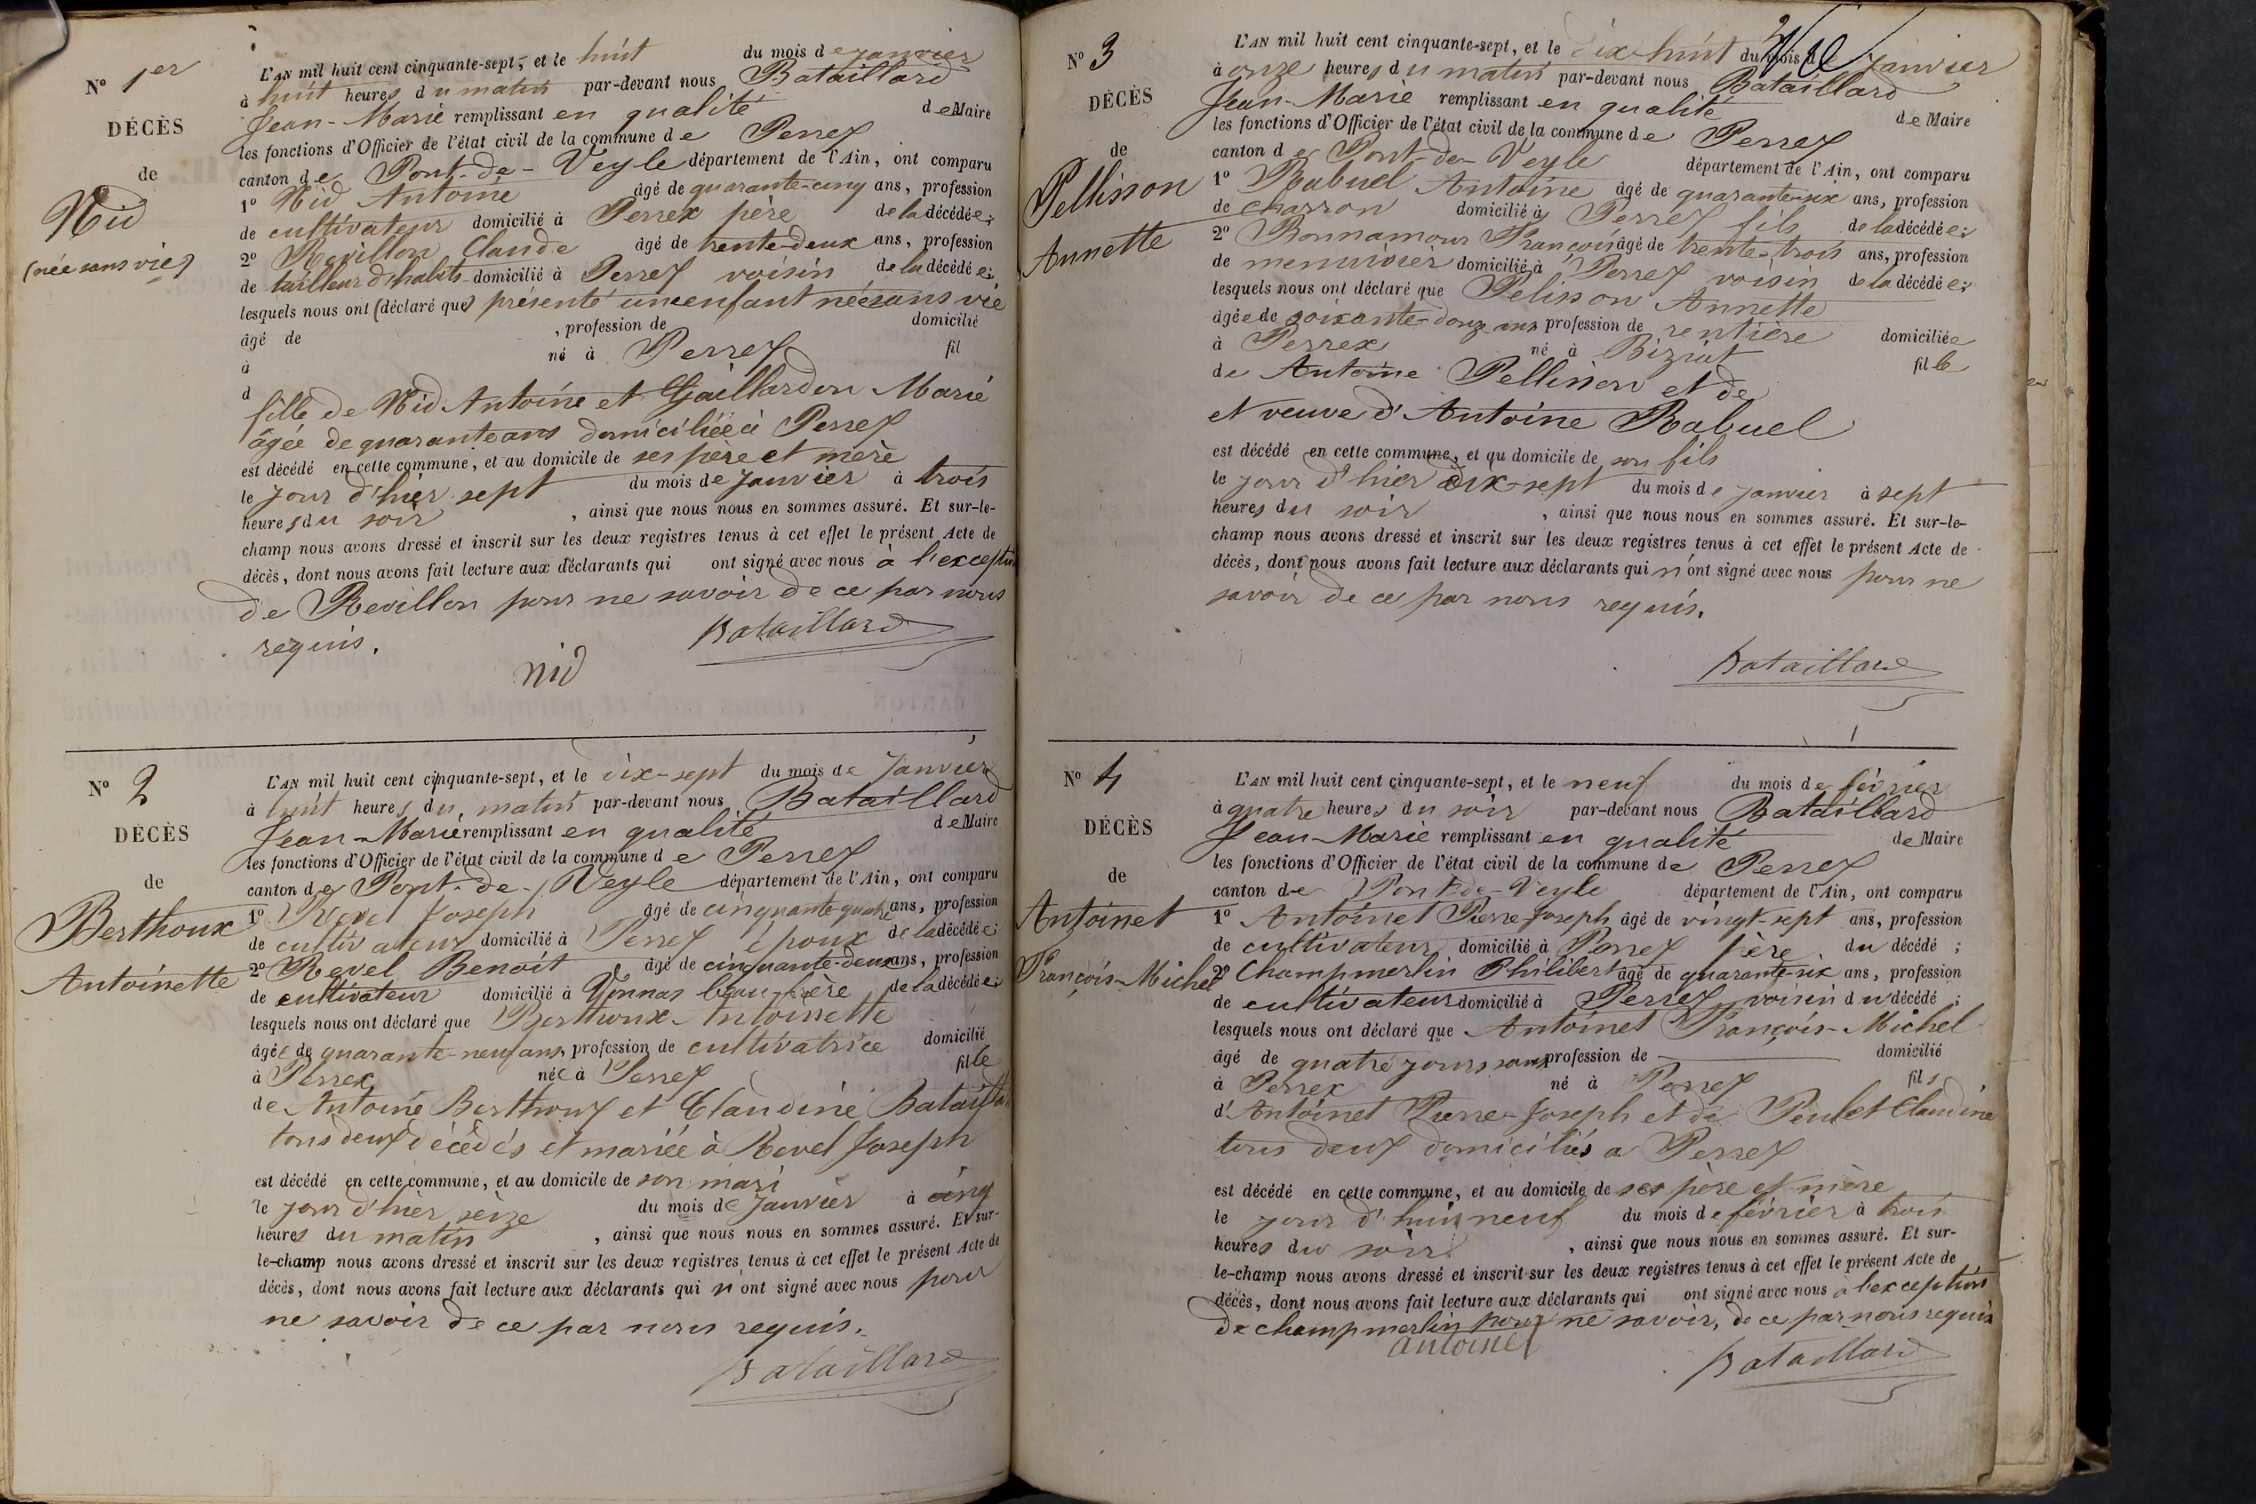 N° 1er
DÉCÈS
de
Nid
(née sans vie)
L'AN mil huit cent cinquante-sept, et le huit du mois de janvier
à huit heures du matin par-devant nous Bataillard
Jean-Marie remplissant en qualité de Maire
les fonctions d'Officier de l'état civil de la commune de Perrex
canton de Pont-de-Veyle département de l'Ain, ont comparu
1° Nid Antoine âgé de quarante-cinq ans, profession
de cultivateur domicilié à Perrex père de la décédée;
2° Revillon Claude âgé de trente-deux ans, profession
de tailleur d'habits domicilié à Perrex voisin de la décédée;
lesquels nous ont (déclaré que) présenté une enfant née sans vie
âgé de , profession de domicilié
à né à Perrex fil
d
fille de Nid Antoine et Gaillardon Marie
âgée de quarante ans domiciliée à Perrex
est décédé en cette commune, et au domicile de ses père et mère
le jour d'hier sept du mois de Janvier à trois
heures du soir , ainsi que nous nous en sommes assuré. Et sur-le-
champ nous avons dressé et inscrit sur les deux registres tenus à cet effet le présent Acte de
décès, dont nous avons fait lecture aux déclarants qui ont signé avec nous à l'exception
de Revillon pour ne savoir de ce par nous
requis.
Bataillard
nid
N° 2
DÉCÈS
de
Berthoux
Antoinette
L'AN mil huit cent cinquante-sept, et le dix-sept du mois de Janvier
à huit heures du matin par-devant nous Bataillard
Jean-Marie remplissant en qualité de Maire
les fonctions d'Officier de l'état civil de la commune de Perrex
canton de Pont-de-Veyle département de l'Ain, ont comparu
1° Revel Joseph âgé de cinquante-quatre ans, profession
de cultivateur domicilié à Perrex époux de la décédée;
2° Revel Benoit âgé de cinquante-deux ans, profession
de cultivateur domicilié à Vonnas beau-frère de la décédée;
lesquels nous ont déclaré que Berthoux Antoinette
âgée de quarante-neuf ans profession de cultivatrice domicilié
à Perrex née à Perrex fille
de Antoine Berthoux et Claudine Bataillard
tous deux décédés et mariée à Revel Joseph
est décédé en cette commune, et au domicile de son mari
le jour d'hier seize du mois de Janvier à cinq
heures du matin , ainsi que nous nous en sommes assuré. Et sur-
le-champ nous avons dressé et inscrit sur les deux registres tenus à cet effet le présent Acte de
décès, dont nous avons fait lecture aux déclarants qui n'ont signé avec nous pour
ne savoir de ce par nous requis.
Bataillard
N° 3
DÉCÈS
de
Pellisson
Annette
L'AN mil huit cent cinquante-sept, et le dix-huit du mois de Janvier
à onze heures du matin par-devant nous Bataillard
Jean-Marie remplissant en qualité de Maire
les fonctions d'Officier de l'état civil de la commune de Perrex
canton de Pont-de-Veyle département de l'Ain, ont comparu
1° Rabuel Antoine âgé de quarante-six ans, profession
de charron domicilié à Perrex fils de la décédée;
2° Bonnamour François âgé de trente-trois ans, profession
de menuisier domicilié à Perrex voisin de la décédée;
lesquels nous ont déclaré que Pelisson Annette
âgée de soixante-douze ans profession de rentière domiciliée
à Perrex né à Biziat fille
de Antoine Pellisson et de
et veuve d'Antoine Rabuel
est décédé en cette commune, et au domicile de son fils
le jour d'hier dix-sept du mois de janvier à sept
heures du soir , ainsi que nous nous en sommes assuré. Et sur-le-
champ nous avons dressé et inscrit sur les deux registres tenus à cet effet le présent Acte de
décès, dont nous avons fait lecture aux déclarants qui n'ont signé avec nous pour ne
savoir de ce par nous requis.
Bataillard
N° 4
DÉCÈS
de
Antoinet
François-Michel
L'AN mil huit cent cinquante-sept, et le neuf du mois de février
à quatre heures du soir par-devant nous Bataillard
Jean-Marie remplissant en qualité de Maire
les fonctions d'Officier de l'état civil de la commune de Perrex
canton de Pont-de-Veyle département de l'Ain, ont comparu
1° Antoinet Pierre-Joseph âgé de vingt-sept ans, profession
de cultivateur domicilié à Perrex père du décédé ;
2° Champmerlin Philibert âgé de quarante-six ans, profession
de cultivateur domicilié à Perrex voisin du décédé ;
lesquels nous ont déclaré que Antoinet François-Michel
âgé de quatre jours sans profession de domicilié
à Perrex né à Perrex fils
d'Antoinet Pierre-Joseph et de Claudine
tous deux domiciliés a Perrex
est décédé en cette commune, et au domicile de ses père et mère
le jour d'hui neuf du mois de février à trois
heures du soir , ainsi que nous nous en sommes assuré. Et sur-
le-champ nous avons dressé et inscrit sur les deux registres tenus à cet effet le présent Acte de
décès, dont nous avons fait lecture aux déclarants qui ont signé avec nous à l'exception
de champmerlin pour ne savoir, de ce par nous requis
antoinet
Bataillard